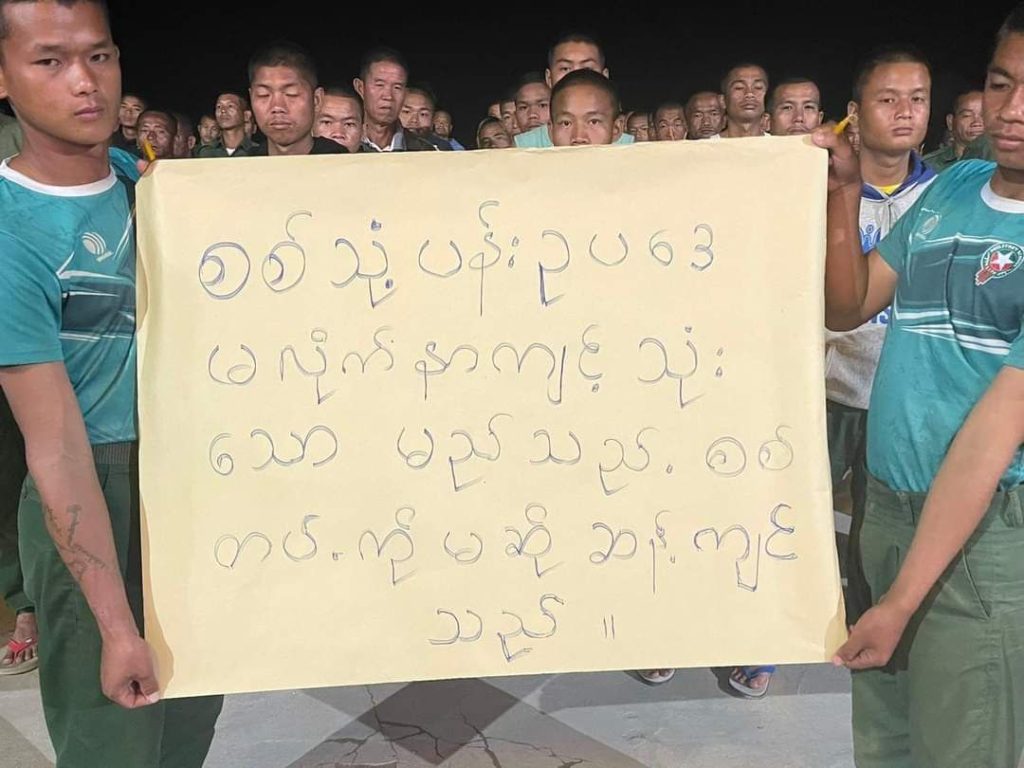 စစ်သုံ့ပန်းဥပဒေ
မလိုက်နာကျင့်သုံး
သော မည်သည့်စစ်
တပ်ကိုမဆို ဆန့်ကျင်
သည်။